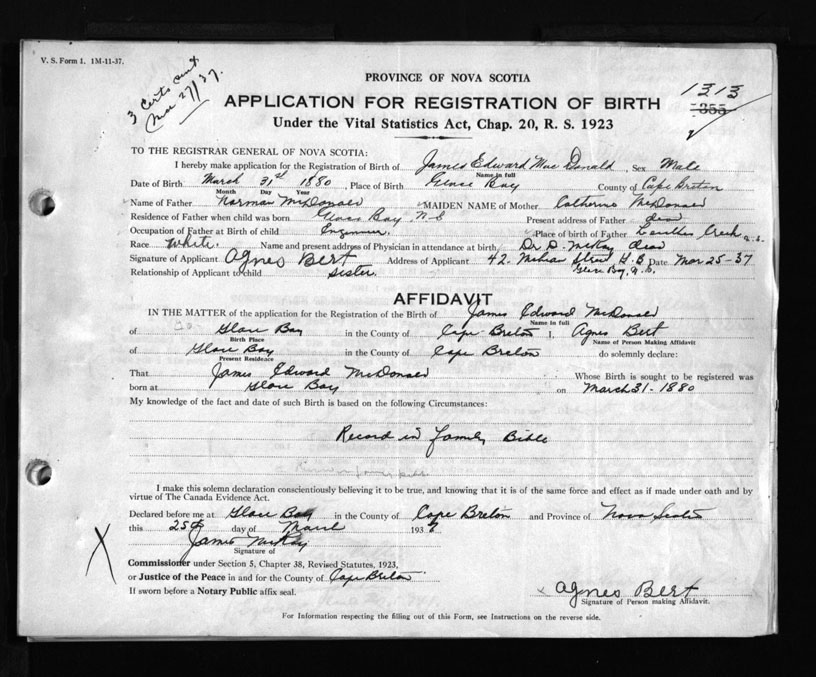 V. S. Form 1. 1M-11-37.
3 Certs sent
Mar 27/37.
PROVINCE OF NOVA SCOTIA
1313
355
APPLICATION FOR REGISTRATION OF BIRTH
Under the Vital Statistics Act, Chap. 20, R. S. 1923
TO THE REGISTRAR GENERAL OF NOVA SCOTIA:
I hereby make application for the Registration of Birth of James Edward Mac Donald, Sex Male
Name in full
Date of Birth March 31st 1880, Place of Birth Glace Bay County of Cape Breton
Month Day Year
Name of Father Norman McDonald MAIDEN NAME of Mother Catherine McDonald
Residence of Father when child was born Glace Bay N-S Present address of Father dead
Occupation of Father at Birth of child Engineer. Place of birth of Father Creek N.S.
Race White. Name and present address of Physician in attendance at birth, Dr D. McKay dead
Signature of Applicant Agnes Bert Address of Applicant 42. Street Date Mar 25-37
Glace Bay, N.S.
Relationship of Applicant to child sister.
AFFIDAVIT
IN THE MATTER of the application for the Registration of Birth of James Edward McDonald
Name in full
of Glace Bay in the County of Cape Breton I, Agnes Bert
Birth Place Name of Person Making Affidavit
of Glace Bay in the County of Cape Breton do solemnly declare:
Present Residence
That James Edward McDonald Whose Birth is sought to be registered was
born at Glace Bay on March 31-1880
My knowledge of the fact and date of such Birth is based on the following Circumstances:
Record in family Bible
I make this solemn declaration conscientiously believing it to be true, and knowing that it is of the same force and effect as if made under oath and by
virtue of The Canada Evidence Act.
Declared before me at Glace Bay in the County of Cape Breton and Province of Nova Scotia
this 25th day of March 1937
James McKay
Signature of
Commissioner under Section 5, Chapter 38, Revised Statutes, 1923,
or Justice of the Peace in and for the County of Cape Breton
If sworn before a Notary Public affix seal.
x Agnes Bert
Signature of Person making Affidavit.
For Information respecting the filling out of this Form, see Instructions on the reverse side.
X